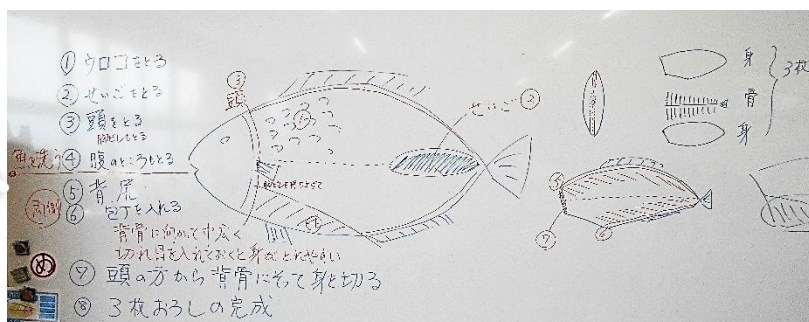 ① ウロコをとる
② せいごをとる
③ 頭をとる
④ 腹のところもとる
魚を洗う
⑤ 背尾
⑥ 包丁を入れる
両側
背骨に向かって寸広く
切れ目を入れておくと身がとれやすい
⑦ 頭の方から背骨にそって身を切る
⑧ 3枚おろしの完成
め
③
頭
①
せいご②
身
骨
身
3枚
⑦